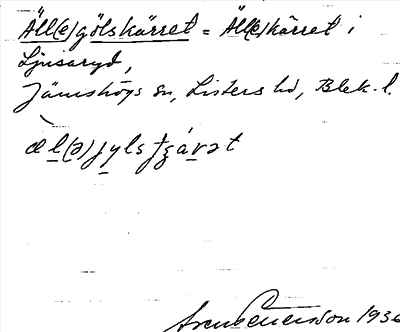 Äll(e)gölskärret = Äll(e)kärret i
Ljusaryd,
Jämshögs sn, Listers hd, Blek. l.
æl(ə)jylsʃʒärət
Svens 1936